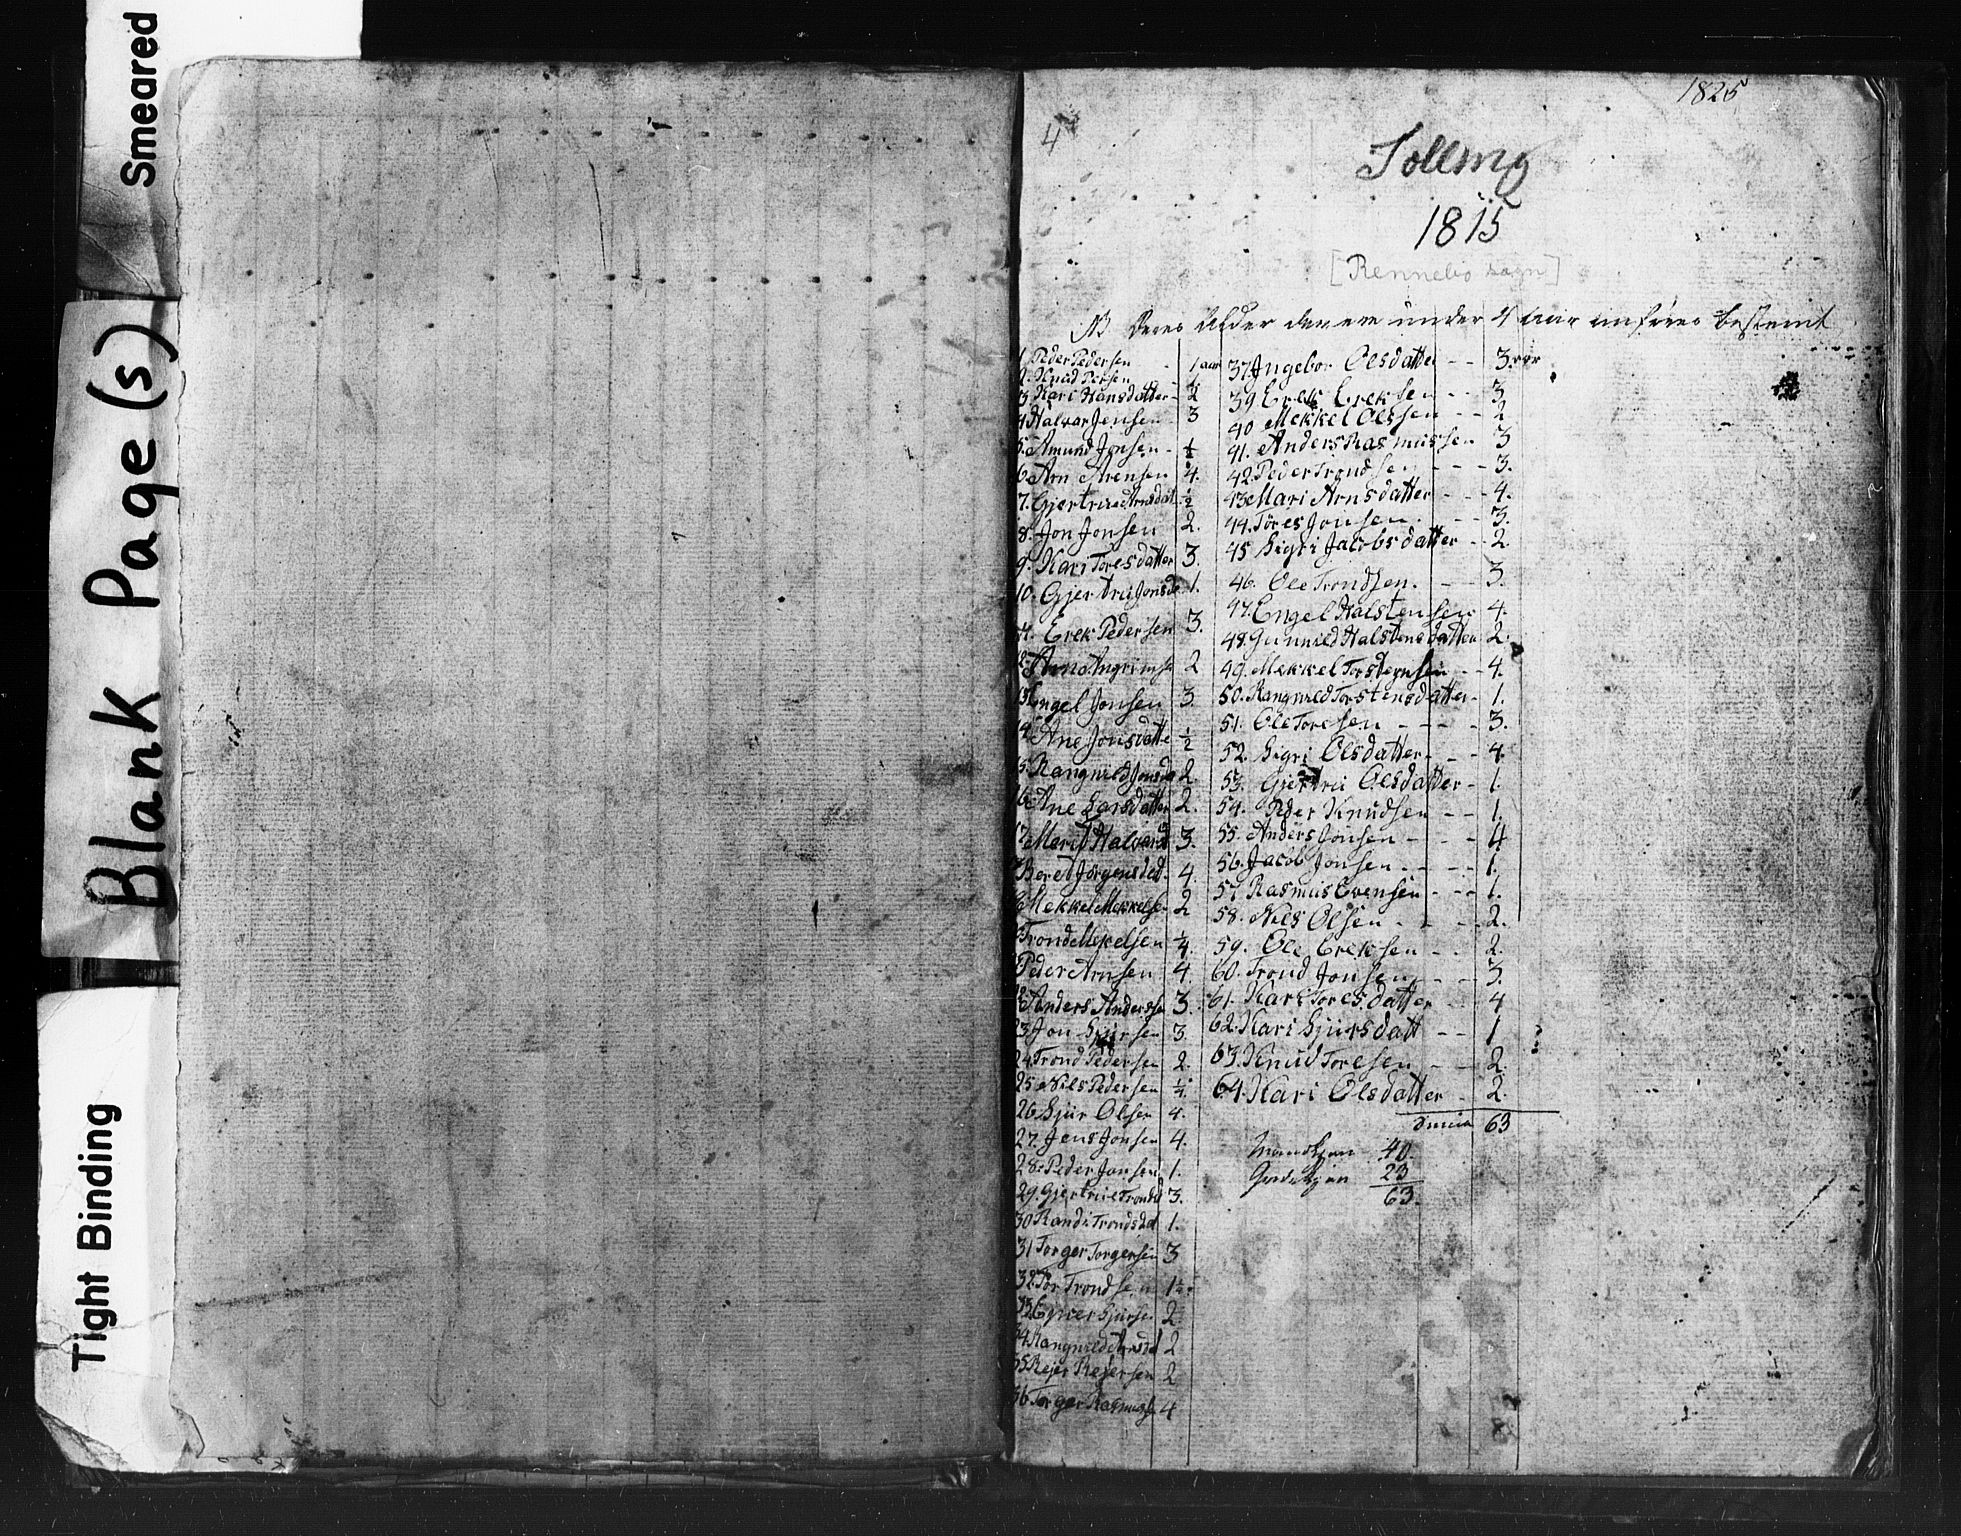 Smeared
Blank Page (s)
Tight Binding
1825
4
Tolling
1815
[Rennebo sogn]
NB Deres Alder der ere under 4 aar anføres bestemt
1. Peder Pedersen - 1 aar
2. Knud Persen -
3 Kari Hansdatter - 2
4 Halvar Jensen - 3
5. Amund Jonsen - ½
6. Arn Arensen 4.
7. Gjertrue Arnsdat. ½
8. Jon Jonsen 2.
9. Kari Toresdatter 3.
10. Gjertru Jonsda 1.
Erek Pedersen 3.
Arn Angrimse 2
Engel Jonsen 3.
Ane Jonsdatte ½
Rangnild Jonsda 2
16 Ane Larsdatter 2.
Merit Halvars 3.
Beret Jørgensdat. 4.
Mekkel Mekkelse 2
Trond Mekelsen ¼
Peder Arnsen 4.
Anders Anderse 3.
23 Jon Sjursen 3.
24 Trond Pedersen 2.
25 Nils Pedersen ¼
26 Sjur Olsen 4.
27. Jens Jonsen 4.
28. Peder Jonsen 1.
29. Gjertrue Trondsd 3.
30 Randi Trondsdat 1.
31 Torger Torgersen 3
32. Tor Trondsen 1½
33 Ejner Sjursen 2
34 Rangnild Arnsdat 2
35 Rejer Rejersen 2
36 Torger Rasmusse 4
37 Ingebor Olsdatter - - 3 aar
39 Erek Ereksen - - 3
40 Mekkel Olssen - - 2
41. Anders Rasmussen 3
42. Peder Trondsen - - - 3.
43 Mari Arnsdatter - - - 4.
44. Töres Jonsen. - - 3.
45 Sigri Jacobsdatter - - 2.
46. Ole Trondsen. - - 3.
47. Engel Halstensen 4.
48. Gunnild Halstensdatter 2.
49. Mekkel Torstensen - - 4.
50. Rangnild Torstensdatter - 1.
51. Ole Toresen - - - - 3.
52. Sigri Olsdatter - - 4.
53. Gjertru Olsdatter - 1.
54. Peder Knudsen - - 1.
55. Anders Jonsen - - - 4
56. Jacob Jonsen - - - - 1.
57 Rasmus Evensen - - - 1.
58. Nils Olsen - - - 2.
59. Ole Ereksen - - 2.
60. Trond Jonsen - - 3.
61. Kari Toresdatter 4
62. Kari Sjursdatt - - 1
63. Knud Toresen - - 2.
64. Kari Olsdatter - 2.
63
Mandkjøn 40.
Qvindekjøn 23
63.